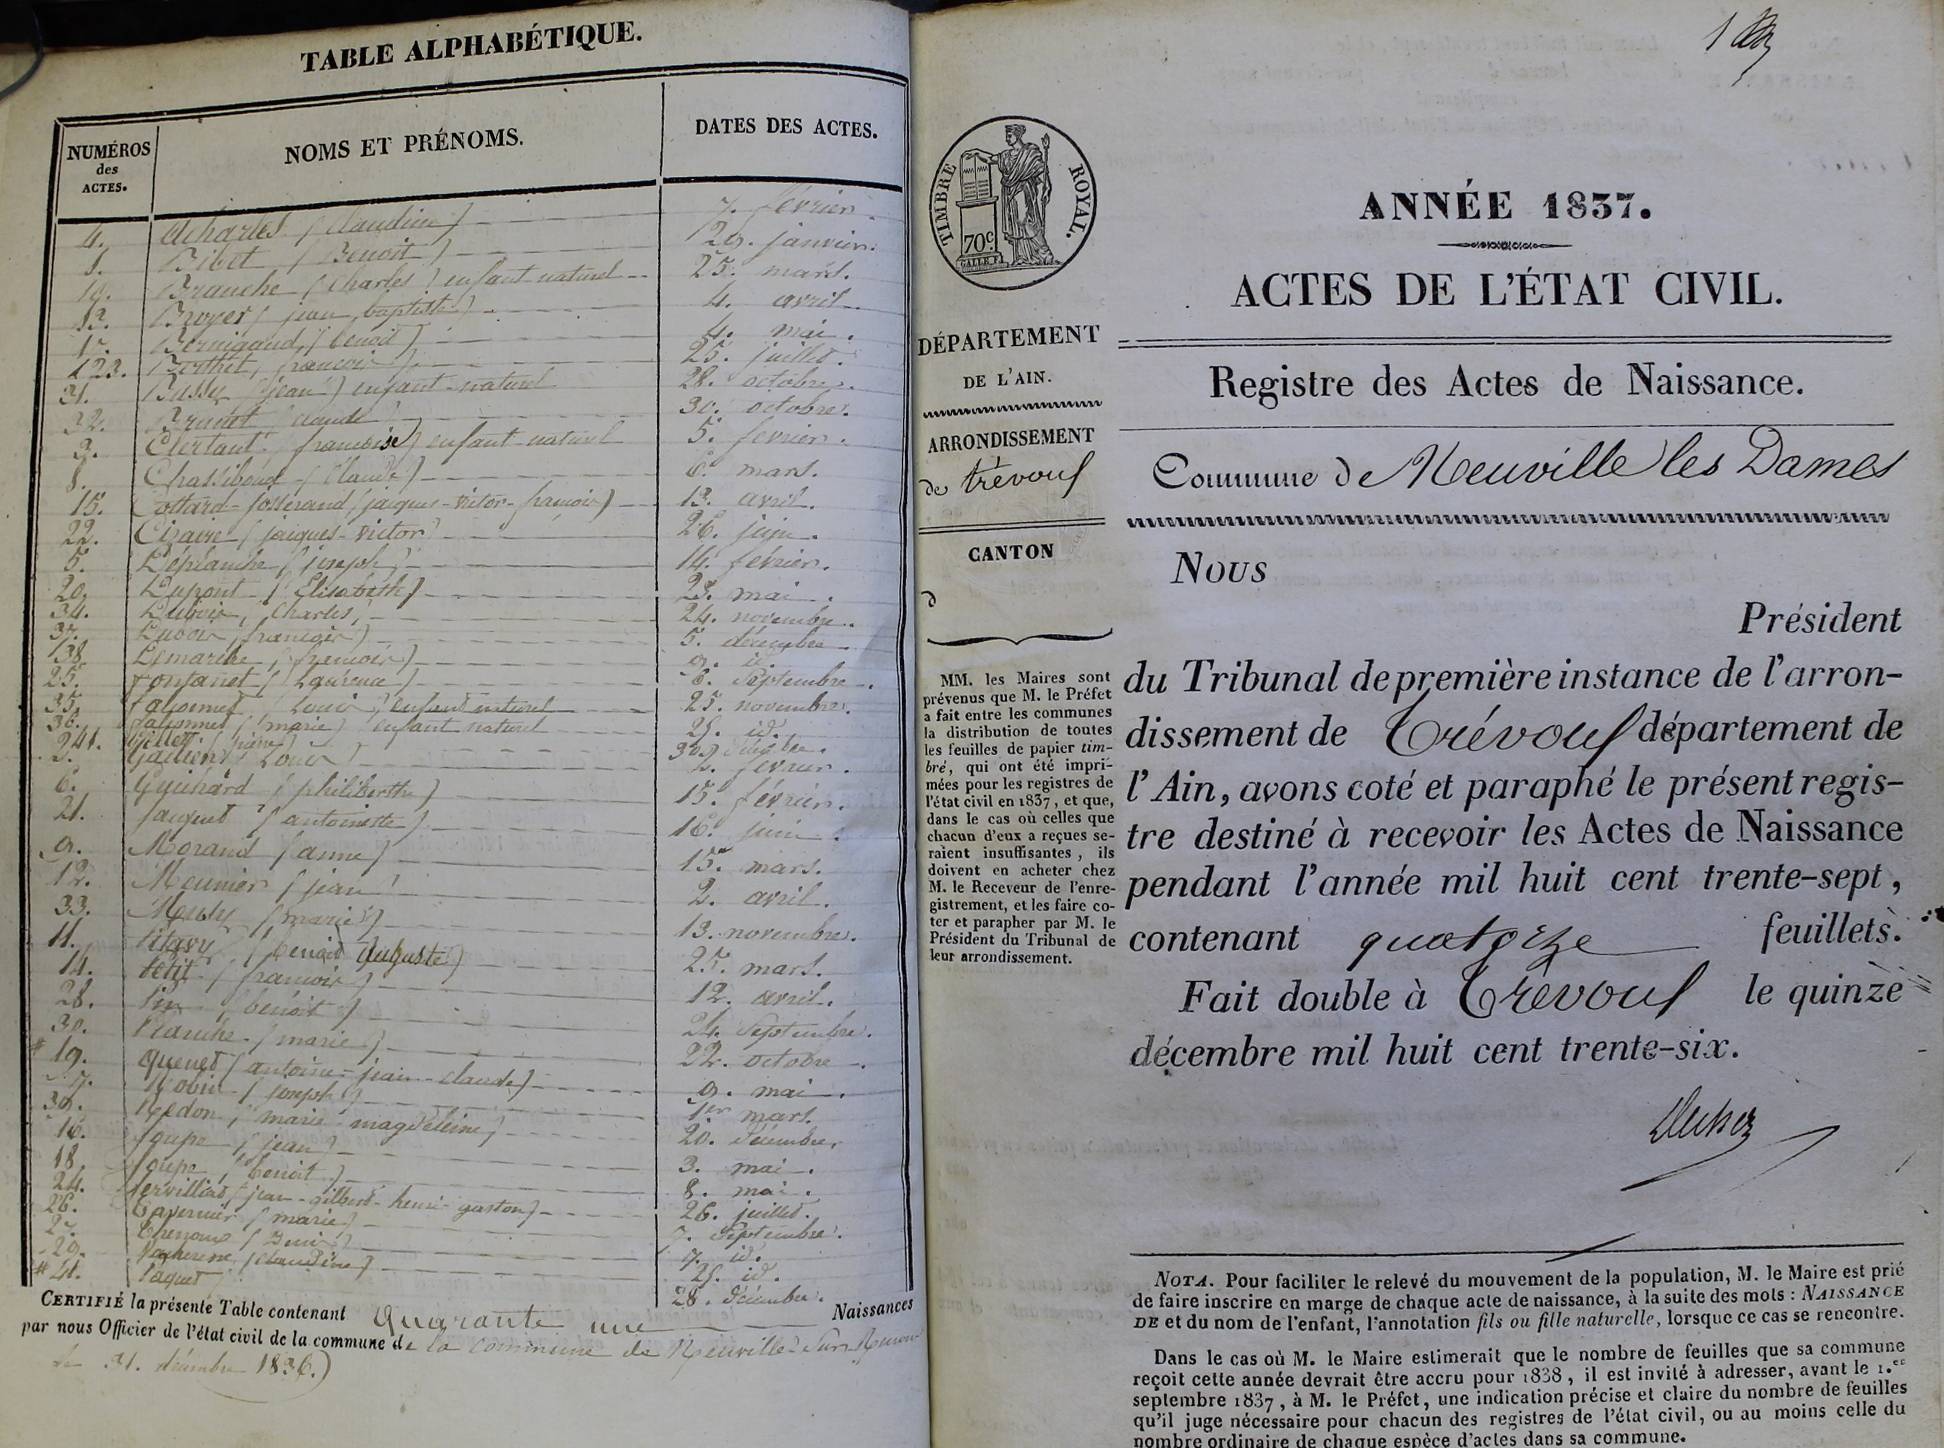 TABLE ALPHABÉTIQUE.
NUMÉROS
des
ACTES.
NOMS ET PRÉNOMS.
DATES DES ACTES.
4. Acharles (Claudine) 7. février.
1. Bibet (Benoit) 29. janvier.
10. Branche (Charles) enfant naturel 25. mars.
13. Broyer (jean baptiste) 4. avril.
17. (benoit) 4. mai.
123. Berthet, francois 25. juillet.
31. Bussy (jean) enfant naturel 28. octobre.
32. Brunet claude 30. octobre.
3. (francoise) enfant naturel 5. février.
8. Chassibout (Claude) 6. mars.
15. Cottard-Josserand (jacques-victor-francois) 13. avril.
22. Cizaire (jacques-victor 26. juin.
5. Déplanche (joseph) 14. février.
20. Dupont (Elisabeth) 23. mai.
34. Dubois, Charles, 24. novembre.
37. Dubois (francois) 5. décembre
38. (francois) 9. id.
25. Fontanet (Laurence) 6. Septembre.
35. enfant naturel 25. novembre.
36. (marie) enfant naturel 25. id.
241. (pierre) 30.
2. Louis 2. fevrier.
6. Guichard (philiberthe) 15. février.
21. Jacquet (antoinette) 16. juin.
9. Morand (anne) 15. mars.
12. Meunier (jean) 2. avril.
33. (marie) 13. novembre.
11. (benoit Auguste) 25. mars.
14. Petit (francois) 12. avril.
28. Pin (benoit) 24. Septembre.
30. Planche (marie) 22. octobre.
19. Quenet (antoine-jean-claude) 9. mai.
7. Robin (joseph) 1er mars.
39. Redon, (marie magdeleine) 20. décembre.
16. Soupe (jean) 3. mai.
18. Soupe, (benoit) 8. mai.
24. Servilliat (jean-gilbert-henri-gaston) 26. juillet.
26. Tavernier (marie) 7. Septembre.
27. (Denis) 7. id.
29. (claudine) 25. id.
41. Paquet 28. décembre.
CERTIFIÉ la présente Table contenant quarante une Naissances
par nous Officier de l'état civil de la commune de la commune de Neuville-sur-Renon
le 31. décembre 1836.)
TIMBRE ROYAL.
70c.
GALLE F.
DÉPARTEMENT
DE L'AIN.
ARRONDISSEMENT
de trévoux
CANTON
d
MM. les Maires sont
prévenus que M. le Préfet
a fait entre les communes
la distribution de toutes
les feuilles de papier tim-
bré, qui ont été impri-
mées pour les registres de
l'état civil en 1837, et que,
dans le cas où celles que
chacun d'eux a reçues se-
raient insuffisantes, ils
doivent en acheter chez
M. le Receveur de l'enre-
gistrement, et les faire co-
ter et parapher par M. le
Président du Tribunal de
leur arrondissement.
1
ANNÉE 1837.
ACTES DE L'ÉTAT CIVIL.
Registre des Actes de Naissance.
Commune de Neuville les Dames
Nous
Président
du Tribunal de première instance de l'arron-
dissement de Trévoux département de
l'Ain, avons coté et paraphé le présent regis-
tre destiné à recevoir les Actes de Naissance
pendant l'année mil huit cent trente-sept,
contenant quatorze feuillets.
Fait double à Trévoux le quinze
décembre mil huit cent trente-six.
NOTA. Pour faciliter le relevé du mouvement de la population, M. le Maire est prié
de faire inscrire en marge de chaque acte de naissance, à la suite des mots : NAISSANCE
DE et du nom de l'enfant, l'annotation fils ou fille naturelle, lorsque ce cas se rencontre.
Dans le cas où M. le Maire estimerait que le nombre de feuilles que sa commune
reçoit cette année devrait être accru pour 1838, il est invité à adresser, avant le 1.er
septembre 1837, à M. le Préfet, une indication précise et claire du nombre de feuilles
qu'il juge nécessaire pour chacun des registres de l'état civil, ou au moins celle du
nombre ordinaire de chaque espèce d'actes dans sa commune.